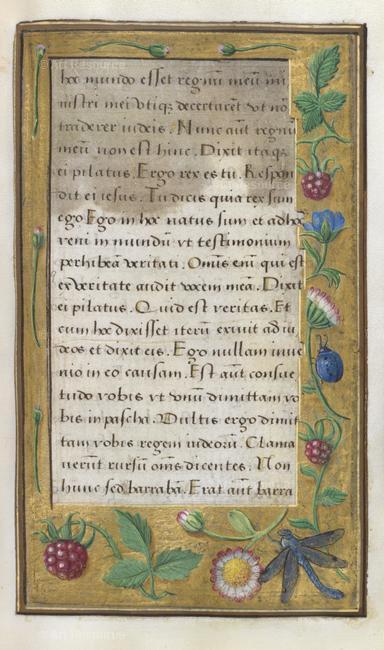 hoc mundo esset regnū meū mi
nistri mei vtiqȝ decertarēt vt nō
traderer iudeis. Nunc aūt regnū
meū non est hinc. Dixit itaqȝ
ei pilatus. Ergo rex es tu. Respon
dit ei iesus. Tu dicis quia rex sum
ego Ego in hoc natus sum et adhoc
veni in mundū vt testimonium
perhibeā veritati. Omīs enī qui est
ex veritate audit vocem meā. Dixit
ei pilatus. Quid est veritas. Et
cum hoc dixisset iterū exiuit ad iu
deos et dixit eis. Ego nullam inue
nio in eo causam. Est aūt consue
tudo vobis vt vnū dimittam vo
bis in pascha. Vultis ergo dimit
tam vobis regem iudeorū. Clama
uerūt rursū om̄s dicentes. Non
hunc sed barrabā. Erat aūt barra
Art Resource
Art Resource